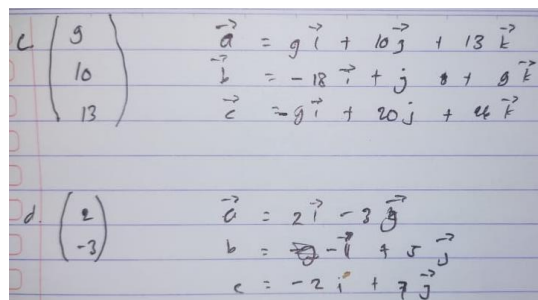 c. (9 10 13) a⃗ = 9 i⃗ + 10 j⃗ + 13 k⃗
b⃗ = -18 i⃗ + j + 9 k⃗
c⃗ = -9 i⃗ + 20 j + k⃗
d. (2 -3) a⃗ = 2 i⃗ - 3 j⃗
b = - i⃗ + 5 j⃗
c = -2 i + 7 j⃗